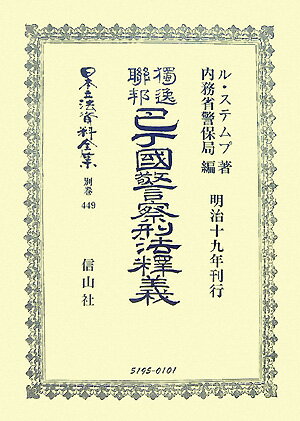 ル・ステムプ著
内務省警保局 編
明治十九年刊行
獨逸
聯邦
巴丁國警察刑法釋義
日本立法資料全集
別巻
449
信山社
5195-0101